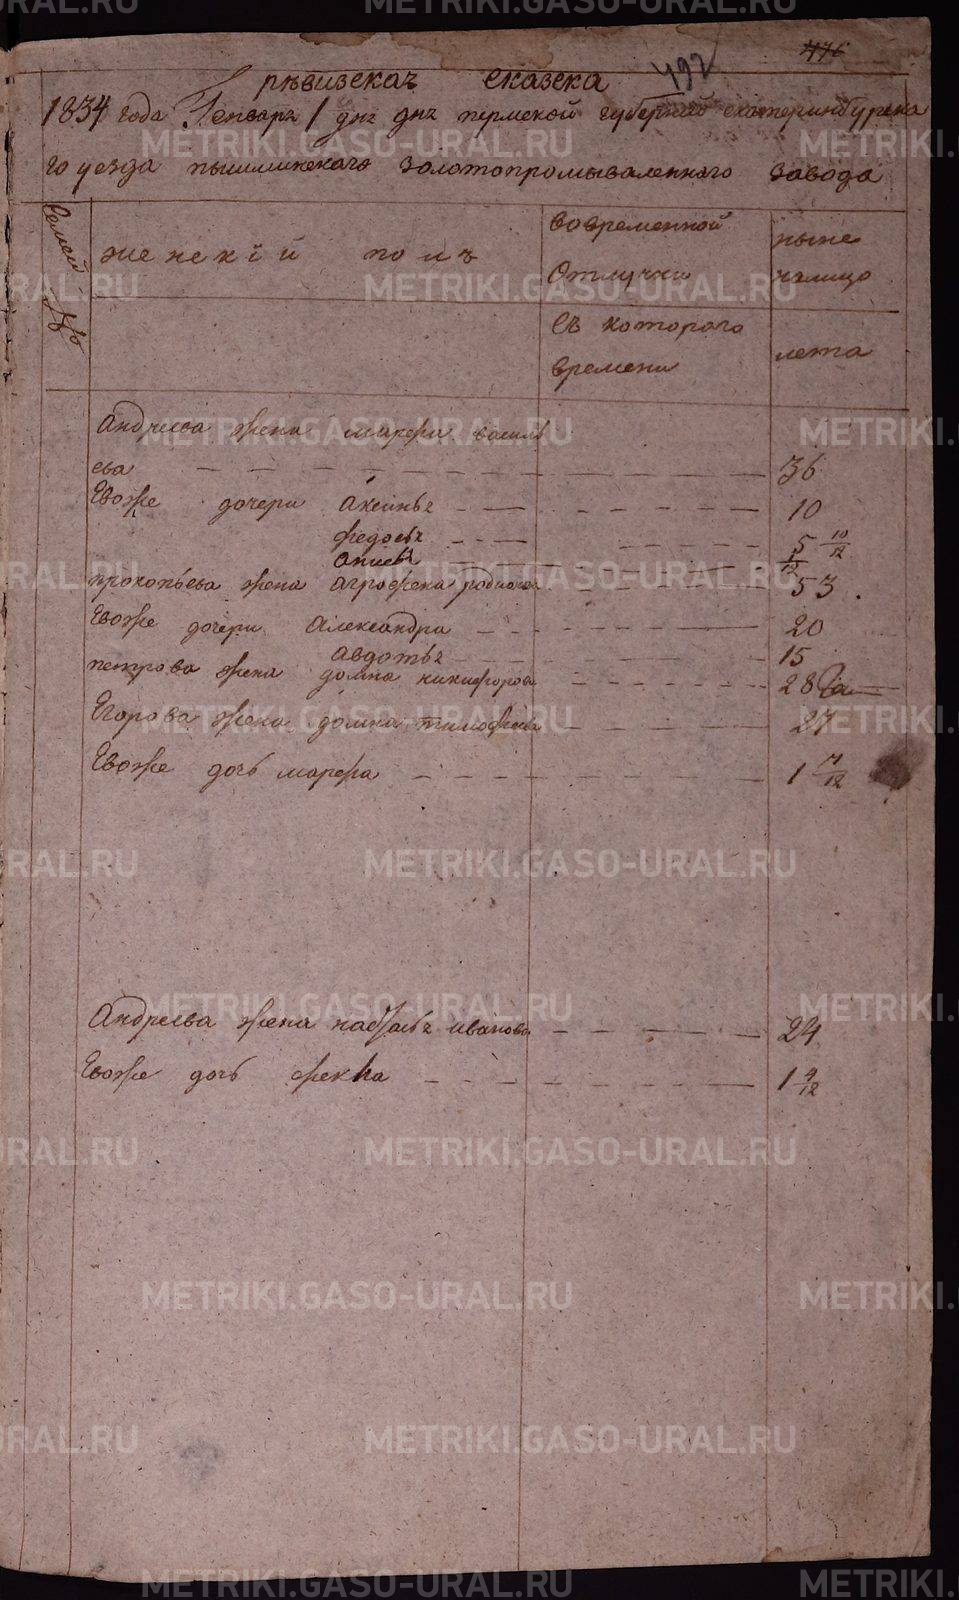 476
492
ревизскаѧ сказска
1834 года Генваря 1 дня дня пермской губерний екатеринбурска
го уезда пышминскаго золотопромываленного завода
Семей №
женскїй полъ
вовременной Отлучки
ныне налицо
Съ которого времени
лета
Андреева жена марфа василь
ева 36
Евоже дочери Аксинья 10
федосья 5 10/12
Анисья
прокопьева жена агрофена родионова 53
Евоже дочери Александра 20
Авдотья 15
петрова жена домна никифорова 28
Егорова жена домна тимофеева 27
Евоже дочь марфа 1
Андреева жена настасья иванова 24
Евоже дочь фекла 1 9/12
METRIKI.GASO-URAL.RU